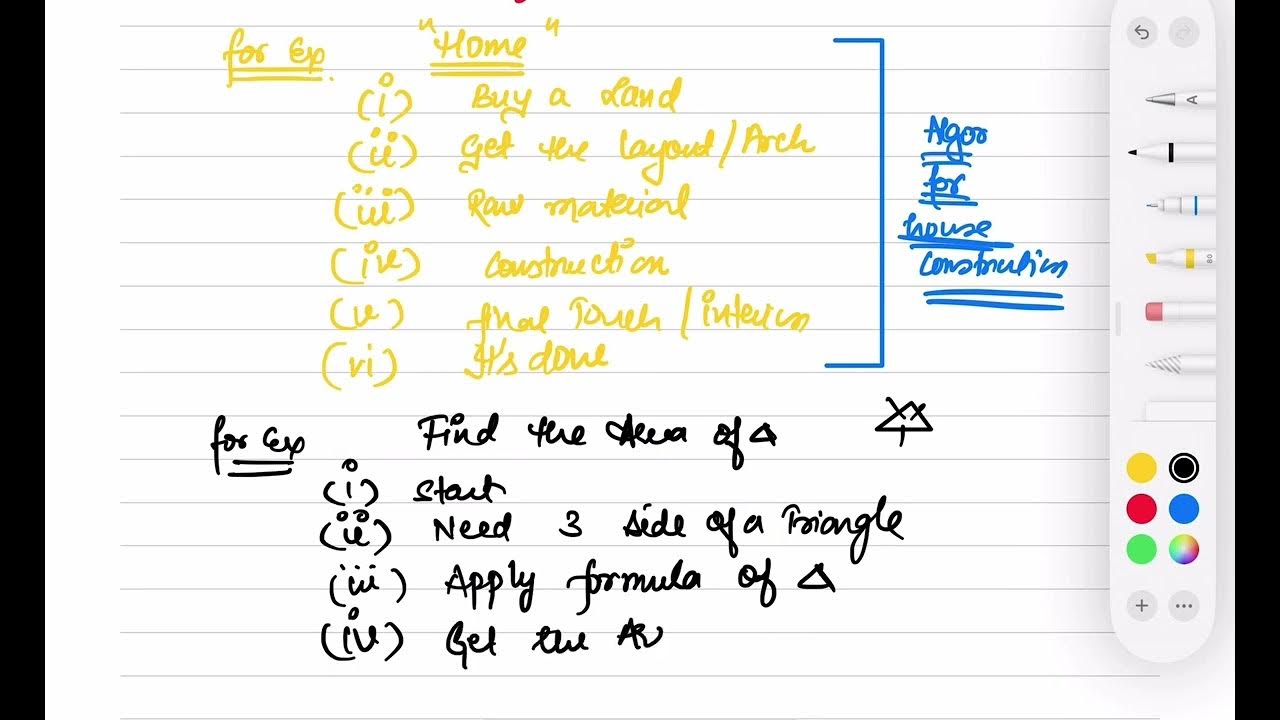 for Ex. "Home"
(i) Buy a Land
(ii) Get the layout/Arch
(iii) Raw material
(iv) Construction
(v) final Touch/interim
(vi) It's done
Algor
for
house
Construction
for Ex Find the Area of Δ
(i) Start
(ii) Need 3 side of a Triangle
(iii) Apply formula of Δ
(iv) Get the Ar
A
80